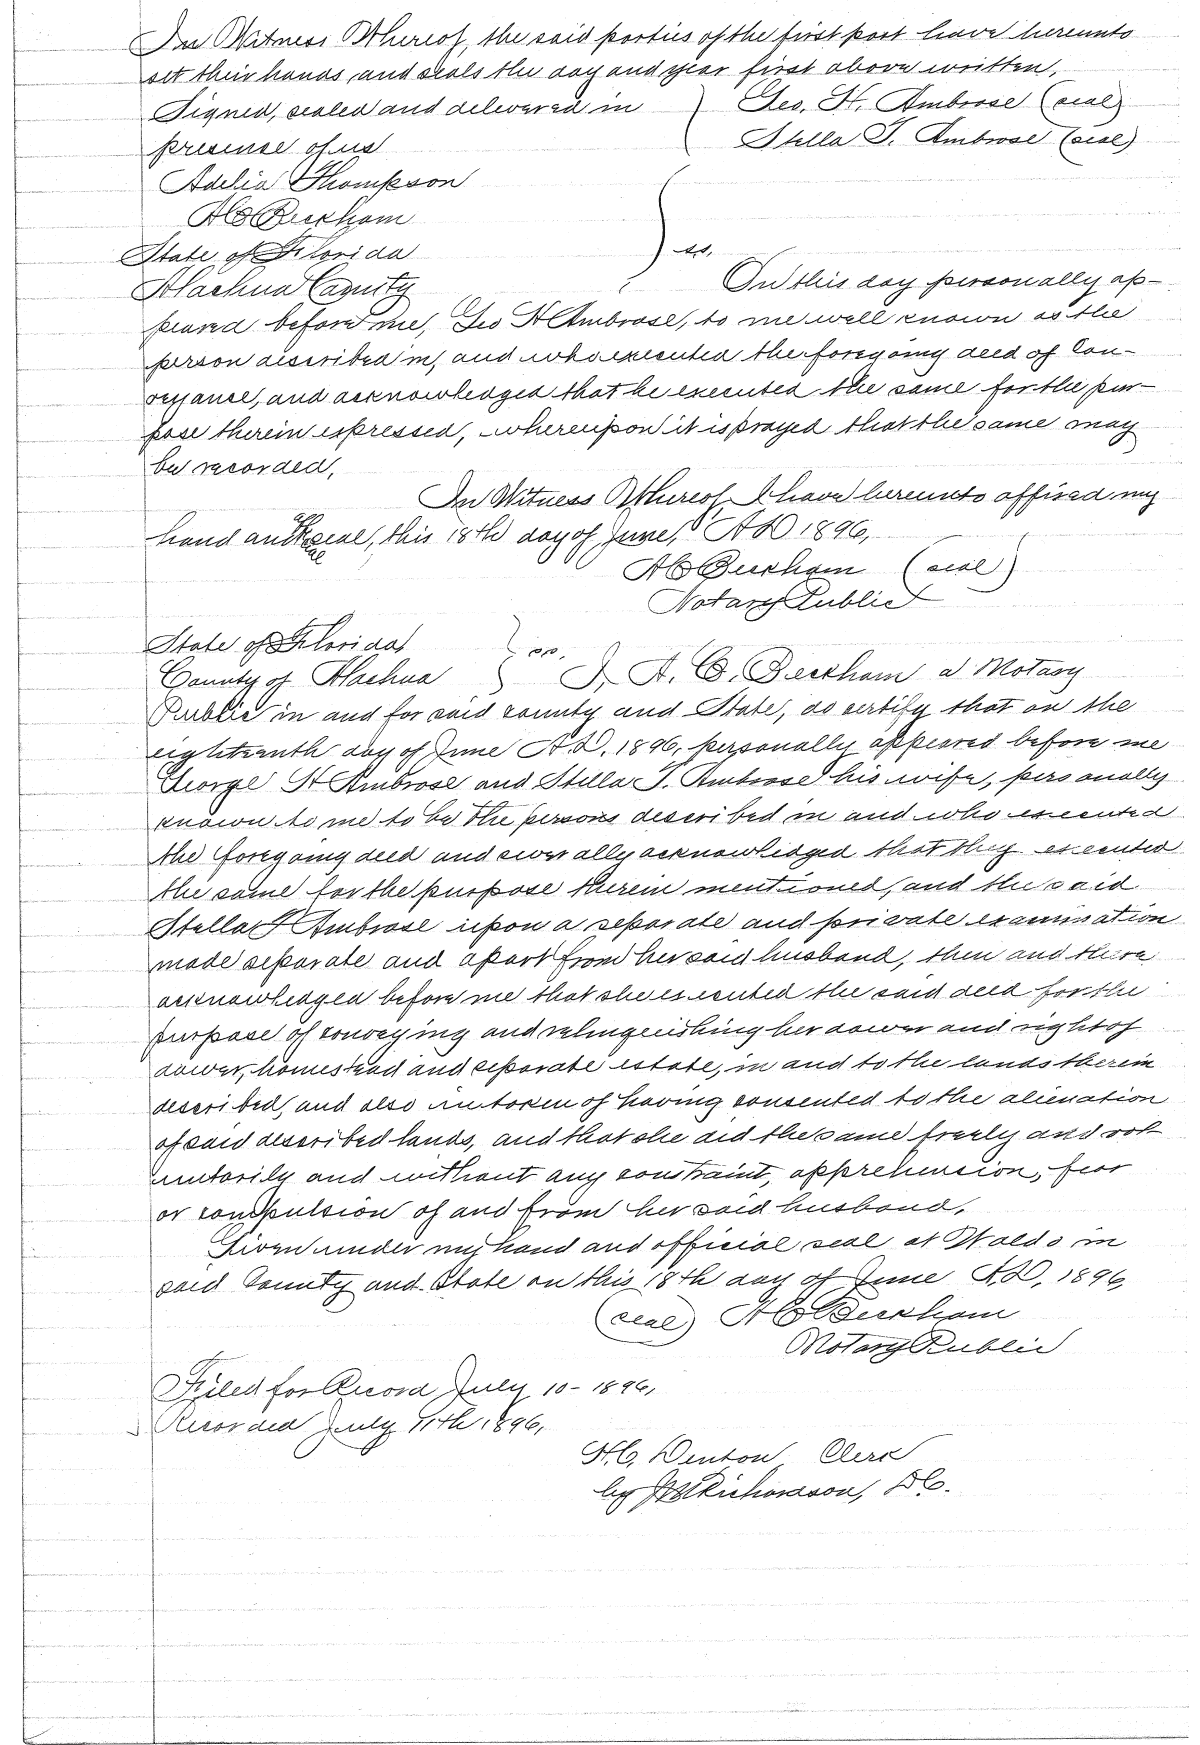 In Witness Whereof, the said parties of the first part have hereunto
set their hands and seals the day and year first above written.
Signed, sealed and delivered in } Geo. H. Ambrose (seal)
presense of us Stella T. Ambrose (seal)
Adelia Thompson
A C Beckham
State of Florida } ss.
Alachua County On this day personally ap-
peared before me, Geo H Ambrose, to me well known as the
person described in, and who executed the foregoing deed of Con-
veyance, and acknowledged that he executed the same for the pur-
pose therein expressed, whereupon it is prayed that the same may
be recorded,
In Witness Whereof I have hereunto affixed my
hand and seal, this 18th day of June, A D 1896,
A C Beckham (seal)
Notary Public
State of Florida } ss.
County of Alachua } I, A. C. Beckham a Notary
Public in and for said county and State, do certify that on the
eighteenth day of June A.D. 1896, personally appeared before me
George H Ambrose and Stella T. Ambrose his wife, personally
known to me to be the persons described in and who executed
the foregoing deed and severally acknowledged that they executed
the same for the purpose therein mentioned, and the said
Stella T Ambrose upon a separate and private examination
made separate and apart from her said husband, then and there
acknowledged before me that she executed the said deed for the
purpose of conveying and relinquishing her dower and right of
dower, homestead and separate estate, in and to the lands therein
described, and also in token of having consented to the alienation
of said described lands, and that she did the same freely and vol-
untarily and without any constraint, apprehension, fear
or compulsion of and from her said husband.
Given under my hand and official seal at Waldo in
said County and State on this 18th day of June A.D. 1896
(seal) A C Beckham
Notary Public
Filed for Record July 10 - 1896,
Recorded July 11th 1896,
H. C. Denton Clerk
by Richardson, D C.